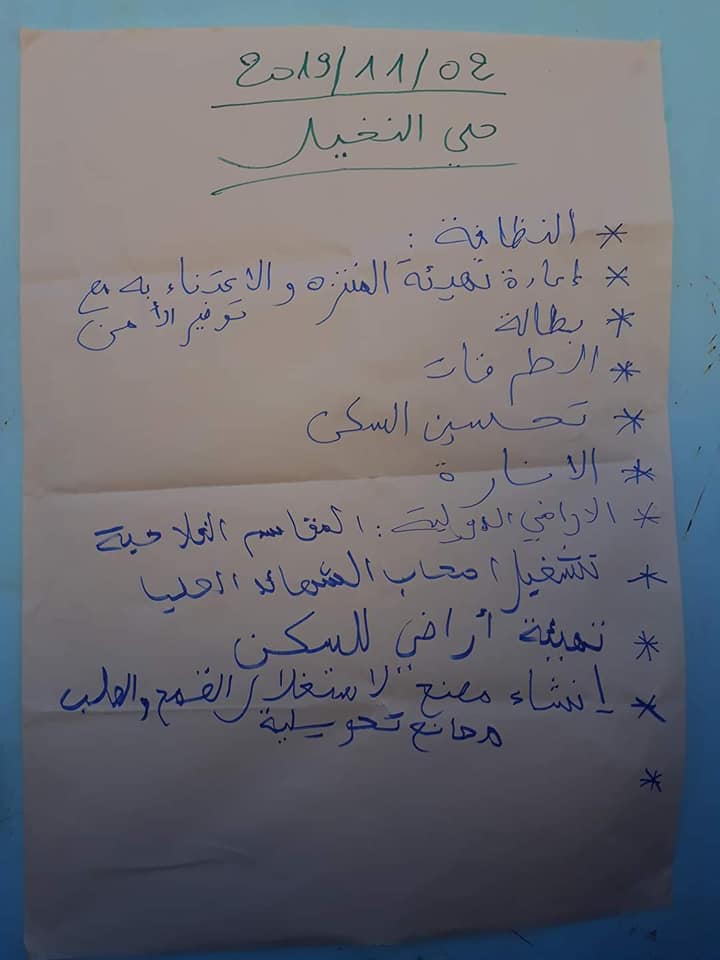 2019/11/02
حي النخيل
* النظافة :
* إعادة تهيئة المنتزه والاعتناء به مع
توفير الأمن
* بطالة
* الطرقات
* تحسين السكن
* الانارة
* الاراضي الدولية : المقاسم الفلاحية
* تشغيل اصحاب الشهائد العليا
* تهيئة أراضي للسكن
* إنشاء مصنع لاستغلال القمح والحليب
مصانع تحويلية
*